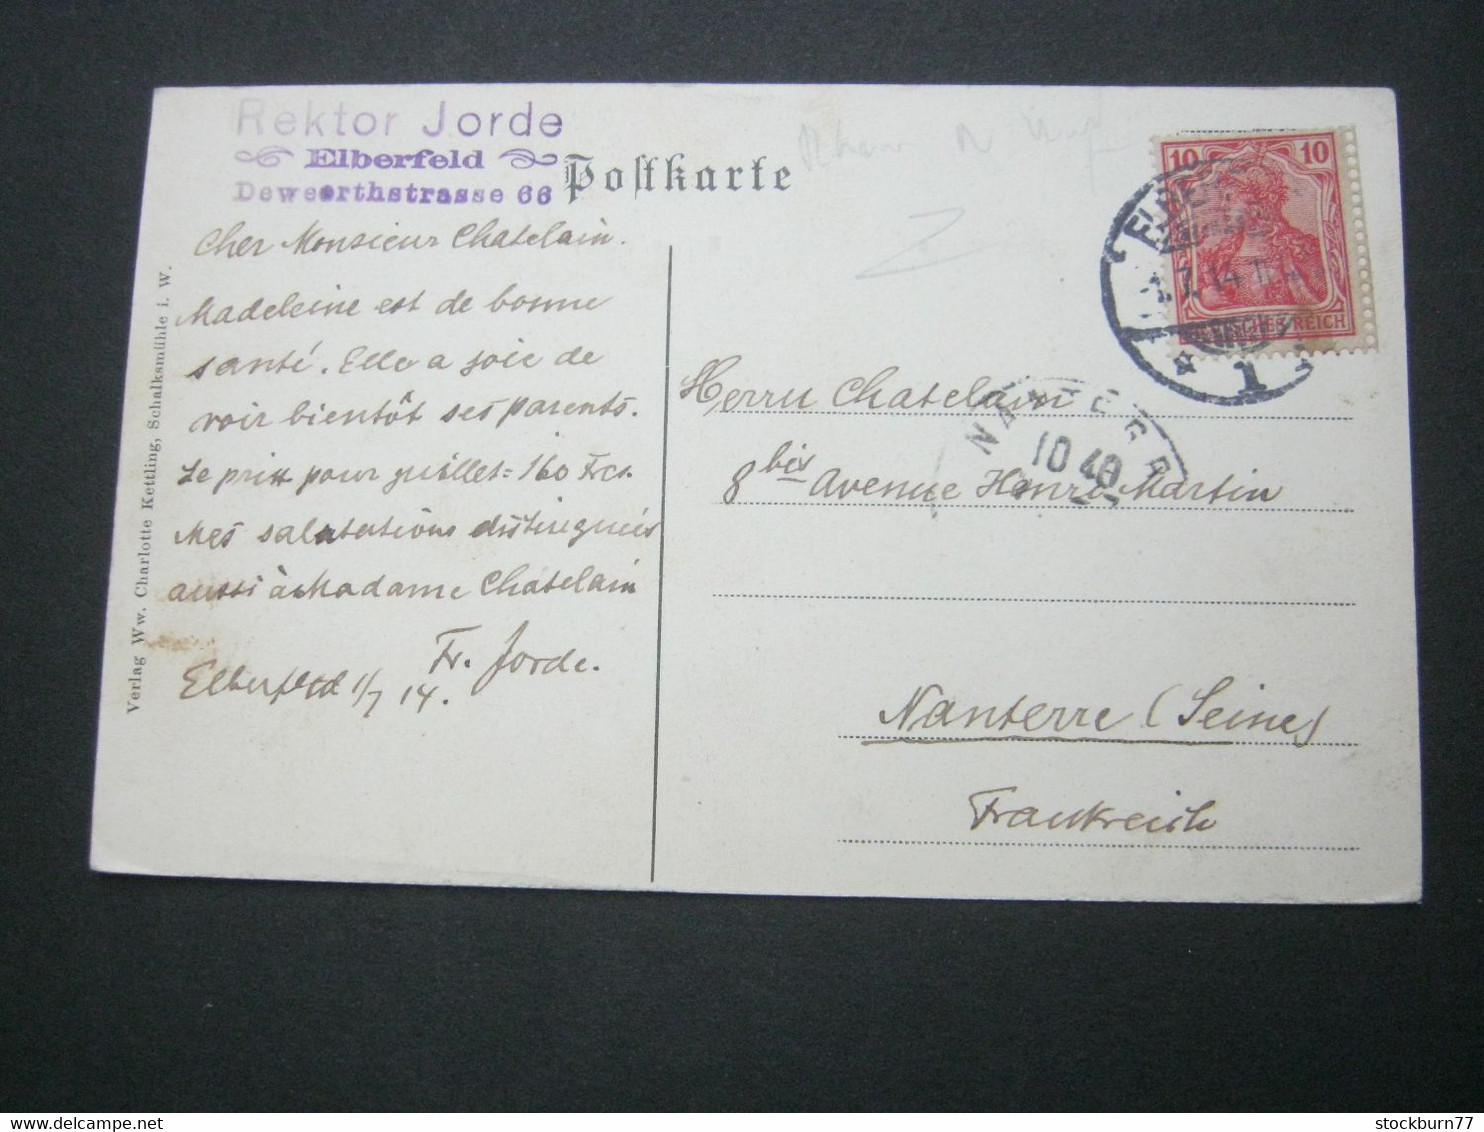 Rektor Jorde
Elberfeld
Deweerthstrasse 66
Postkarte
Cher Monsieur Chatelain.
Madeleine est de bonne
santé. Elle a joie de
voir bientôt ses parents.
Le prix pour juillet = 160 Frcs.
Mes salutations distinguées
aussi à Madame Chatelain
Fr. Jorde.
Elberfeld 1/7 14.
Verlag Ww. Charlotte Kettling, Schalksmühle i. W.
10 10
DEUTSCHES REICH
1
Herrn Chatelain
NANTERRE
10 40
8 bis Avenue Henri Martin
Nanterre (Seine)
Frankreich
stockburn77